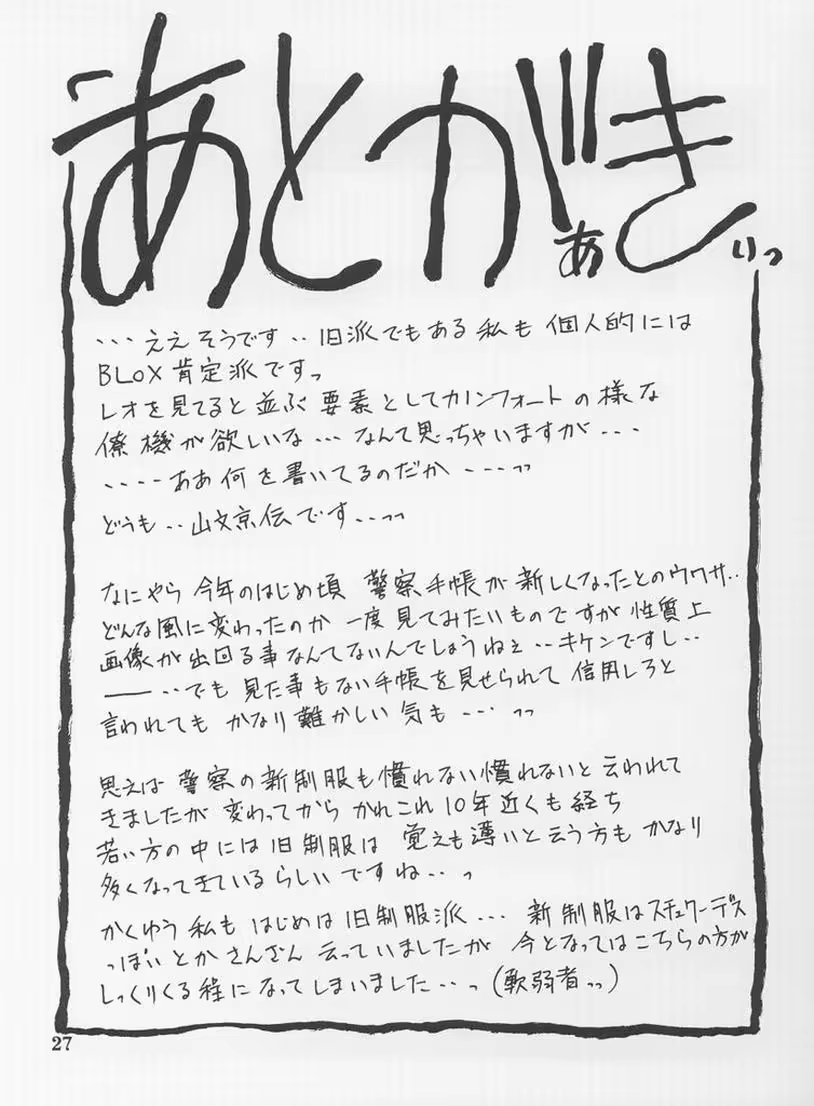 あとがきぁぃっ
･･･ええそうです‥旧派でもある私も個人的には
BLOX肯定派ですっ
レオを見てると並ぶ要素としてカノンフォートの様な
僚機が欲しいな･･･なんて思っちゃいますが･･･
････ああ何を書いてるのだか･･･っっ
どうも‥山文京伝です‥っっ
なにやら今年のはじめ頃 警察手帳が新しくなったとのウワサ‥
どんな風に変わったのか一度見てみたいものですが性質上
画像が出回る事なんてないんでしょうねぇ‥キケンですし‥
――‥でも見た事もない手帳を見せられて信用しろと
言われてもかなり難かしい気も･･･っっ
思えば警察の新制服も慣れない慣れないと云われて
きましたが変わってからかれこれ10年近くも経ち
若い方の中には旧制服は覚えも薄いと云う方もかなり
多くなってきているらしいですね‥っ
かくゆう私もはじめは旧制服派･･･新制服はスチュワーデス
っぽいとかさんざん云っていましたが今となってはこちらの方が
しっくりくる程になってしまいました‥っ(軟弱者っっ)
27